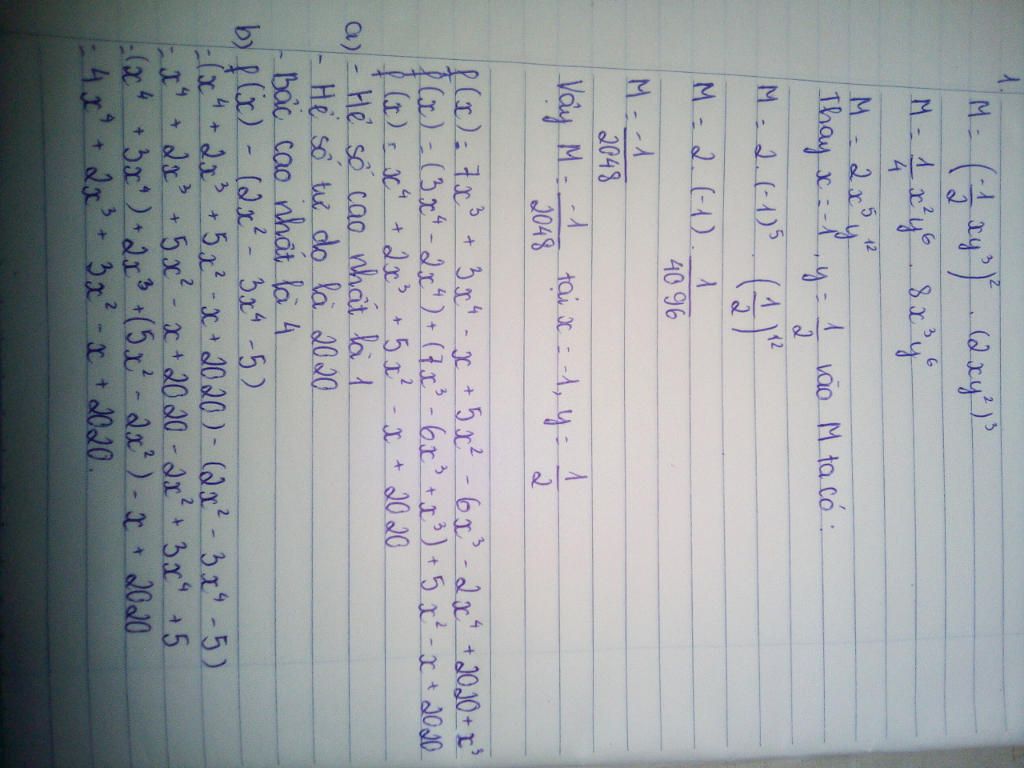 1. M = (-1/2 xy³)² . (2xy²)³
M = 1/4 x²y⁶ . 8x³y⁶
M = 2x⁵y¹²
Thay x = -1, y = 1/2 vào M ta có:
M = 2.(-1)⁵ . (1/2)¹²
M = 2.(-1). 1/4096
M = -1/2048
Vậy M = -1/2048 tại x = -1, y = 1/2
f(x) = 7x³ + 3x⁴ - x + 5x² - 6x³ - 2x⁴ + 2020 + x³
f(x) = (3x⁴ - 2x⁴) + (7x³ - 6x³ + x³) + 5x² - x + 2020
f(x) = x⁴ + 2x³ + 5x² - x + 2020
a) - Hệ số cao nhất là 1
- Hệ số tự do là 2020
- Bậc cao nhất là 4
b) f(x) - (2x² - 3x⁴ - 5)
= (x⁴ + 2x³ + 5x² - x + 2020) - (2x² - 3x⁴ - 5)
= x⁴ + 2x³ + 5x² - x + 2020 - 2x² + 3x⁴ + 5
= (x⁴ + 3x⁴) + 2x³ + (5x² - 2x²) - x + 2020
= 4x⁴ + 2x³ + 3x² - x + 2020.